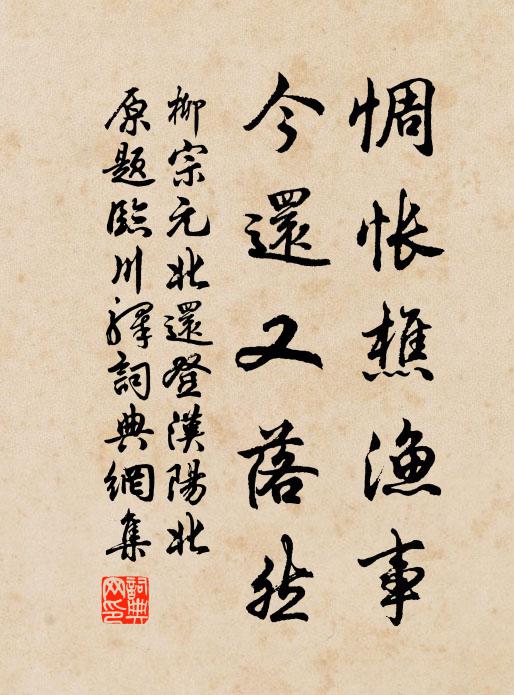 惆悵樵漁事
今還又落然
柳宗元北還登漢陽北
原題臨川驛詞典網集
詞典
网印